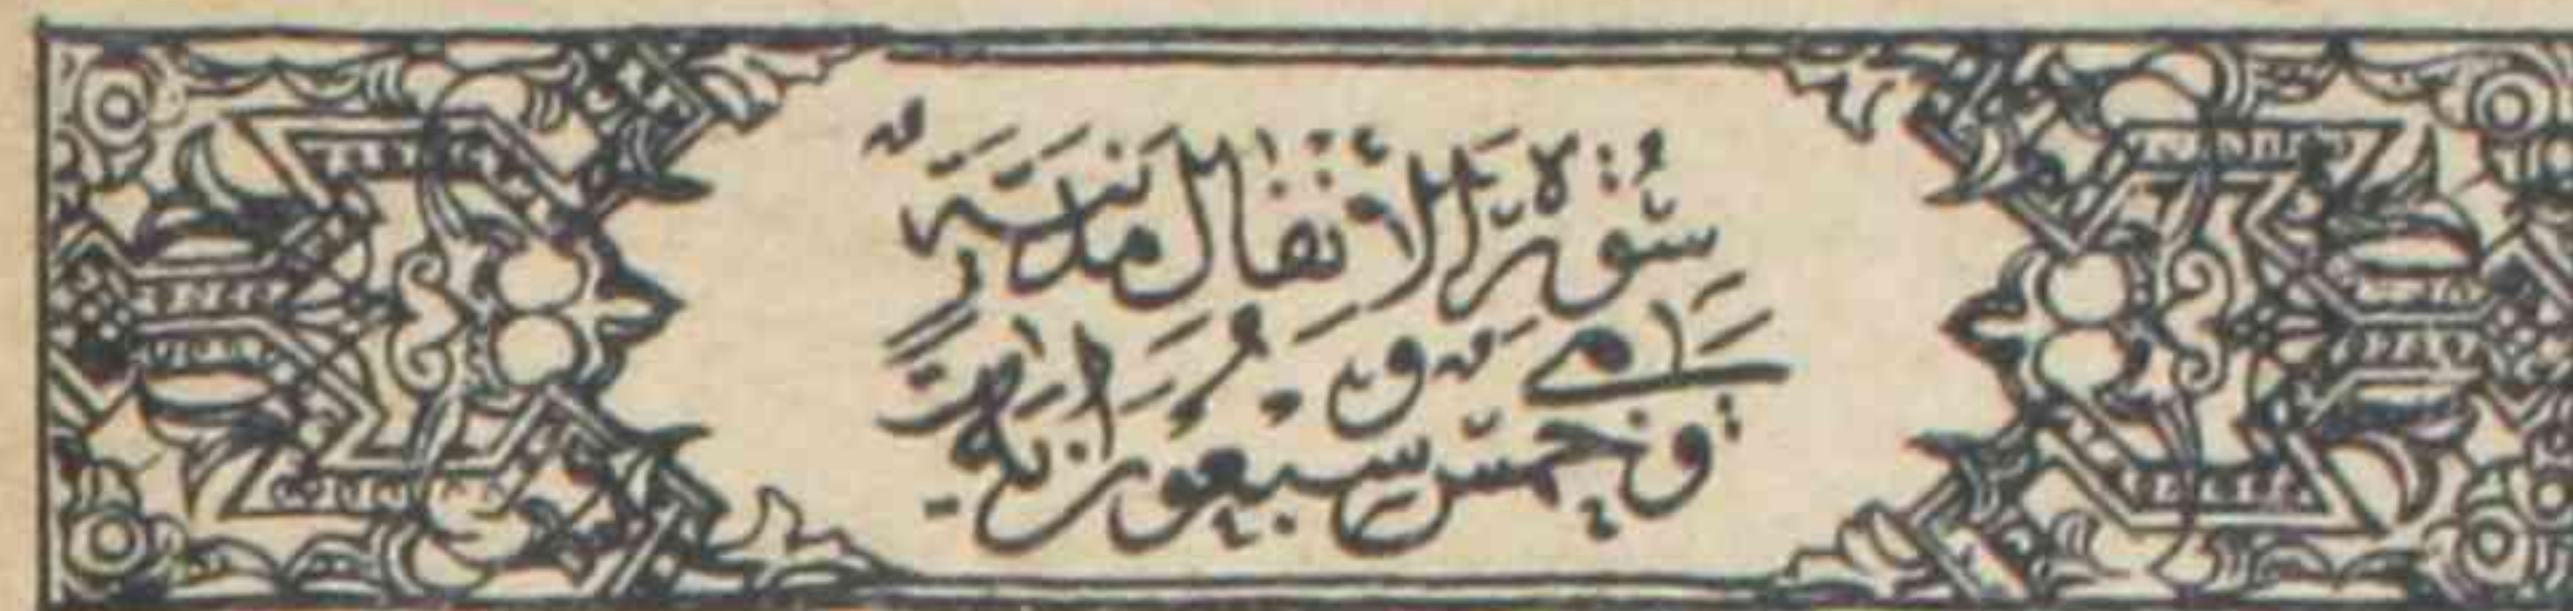 سُوْرَةُ الْأَنْفَالِ مَدَنِيَّةٌ
وهي خمس وّسبعون اية